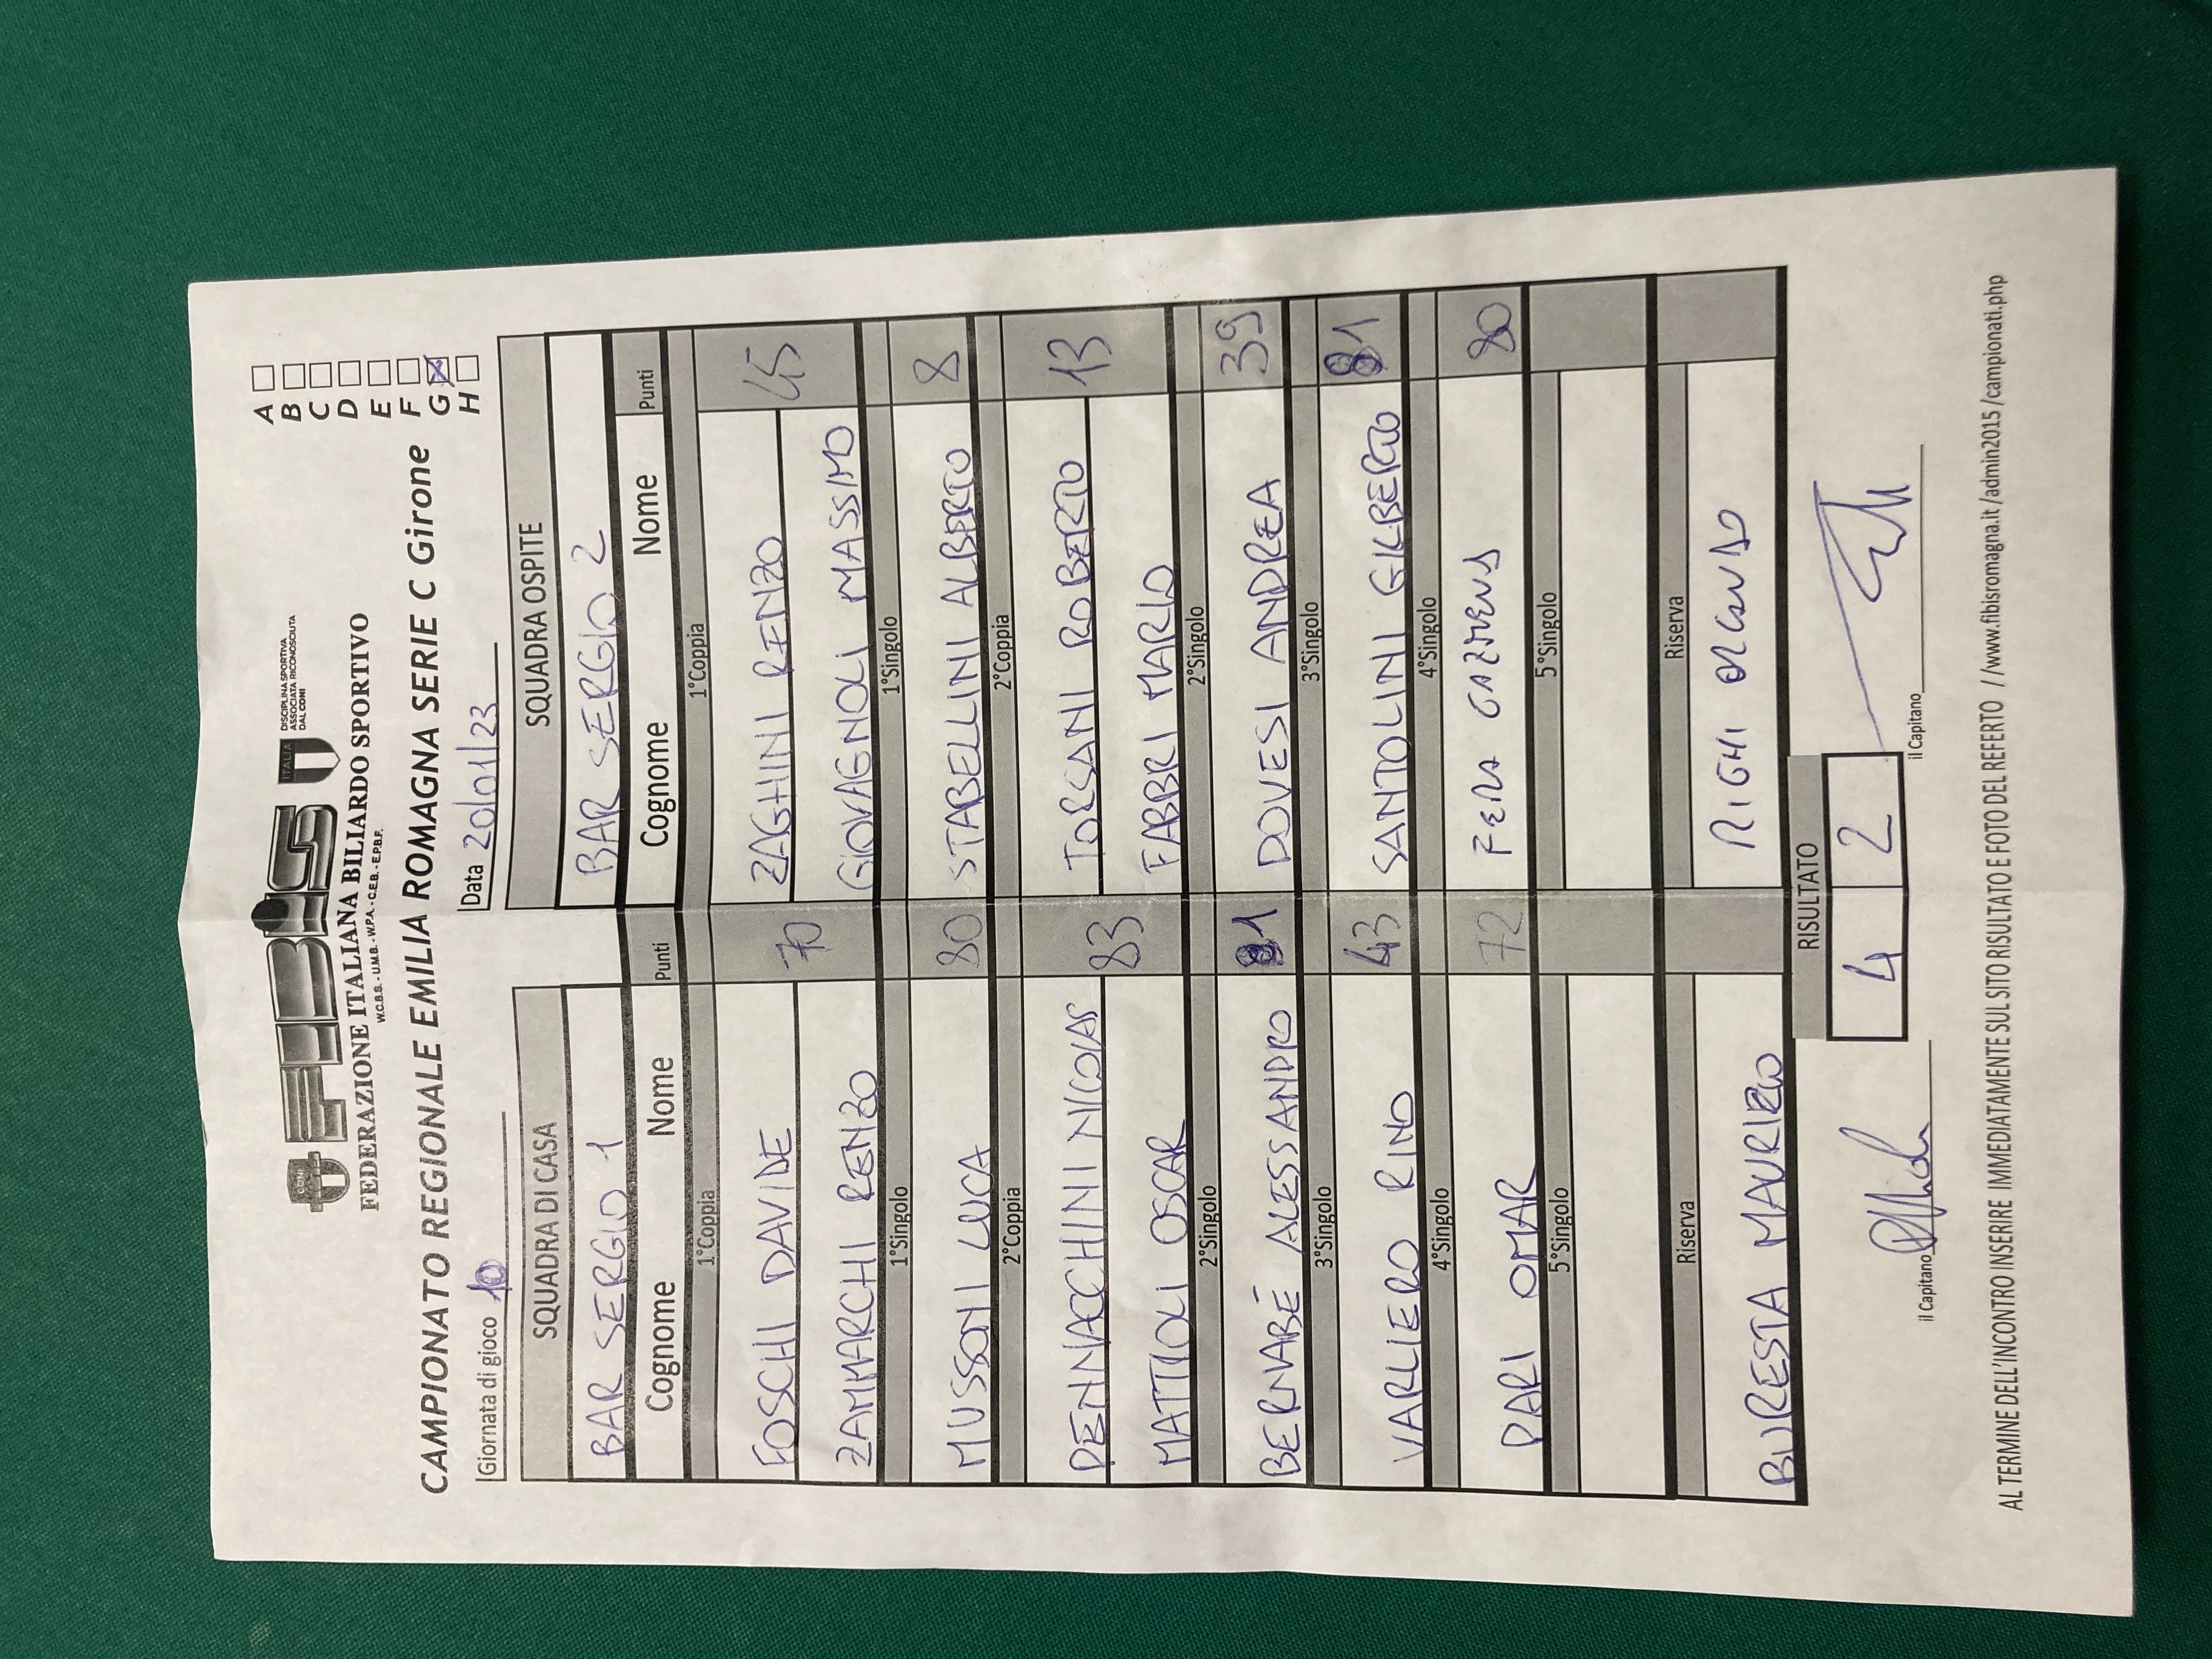 FIBiS
CONI
ITALIA
DISCIPLINA SPORTIVA
ASSOCIATA RICONOSCIUTA
DAL CONI
FEDERAZIONE ITALIANA BILIARDO SPORTIVO
W.C.B.S. - U.M.B. - W.P.A. - C.E.B. - E.P.B.F.
CAMPIONATO REGIONALE EMILIA ROMAGNA SERIE C Girone
A
B
C
D
E
F
G X
H
Giornata di gioco 10 Data 20/01/23
SQUADRA DI CASA SQUADRA OSPITE
BAR SERGIO 1 BAR SERGIO 2
Cognome Nome Punti Cognome Nome Punti
1°Coppia 1°Coppia
FOSCHI DAVIDE 70 ZAGHINI RENZO 45
ZAMMARCHI RENZO GIOVAGNOLI MASSIMO
1°Singolo 1°Singolo
MUSSONI LUCA 80 STABELLINI ALBERTO 8
2°Coppia 2°Coppia
PENNACCHINI NICOLAS 83 TORSANI ROBERTO 13
MATTIOLI OSCAR FABBRI MARIO
2°Singolo 2°Singolo
BERNABÉ ALESSANDRO 81 DOVESI ANDREA 39
3°Singolo 3°Singolo
VARLIERO RINO 43 SANTOLINI GILBERTO 81
4°Singolo 4°Singolo
PARI OMAR 72 80
5°Singolo 5°Singolo
Riserva Riserva
BURESTA MAURIZIO RIGHI
RISULTATO
4 2
il Capitano il Capitano
AL TERMINE DELL'INCONTRO INSERIRE IMMEDIATAMENTE SUL SITO RISULTATO E FOTO DEL REFERTO //www.fibisromagna.it /admin2015 /campionati.php